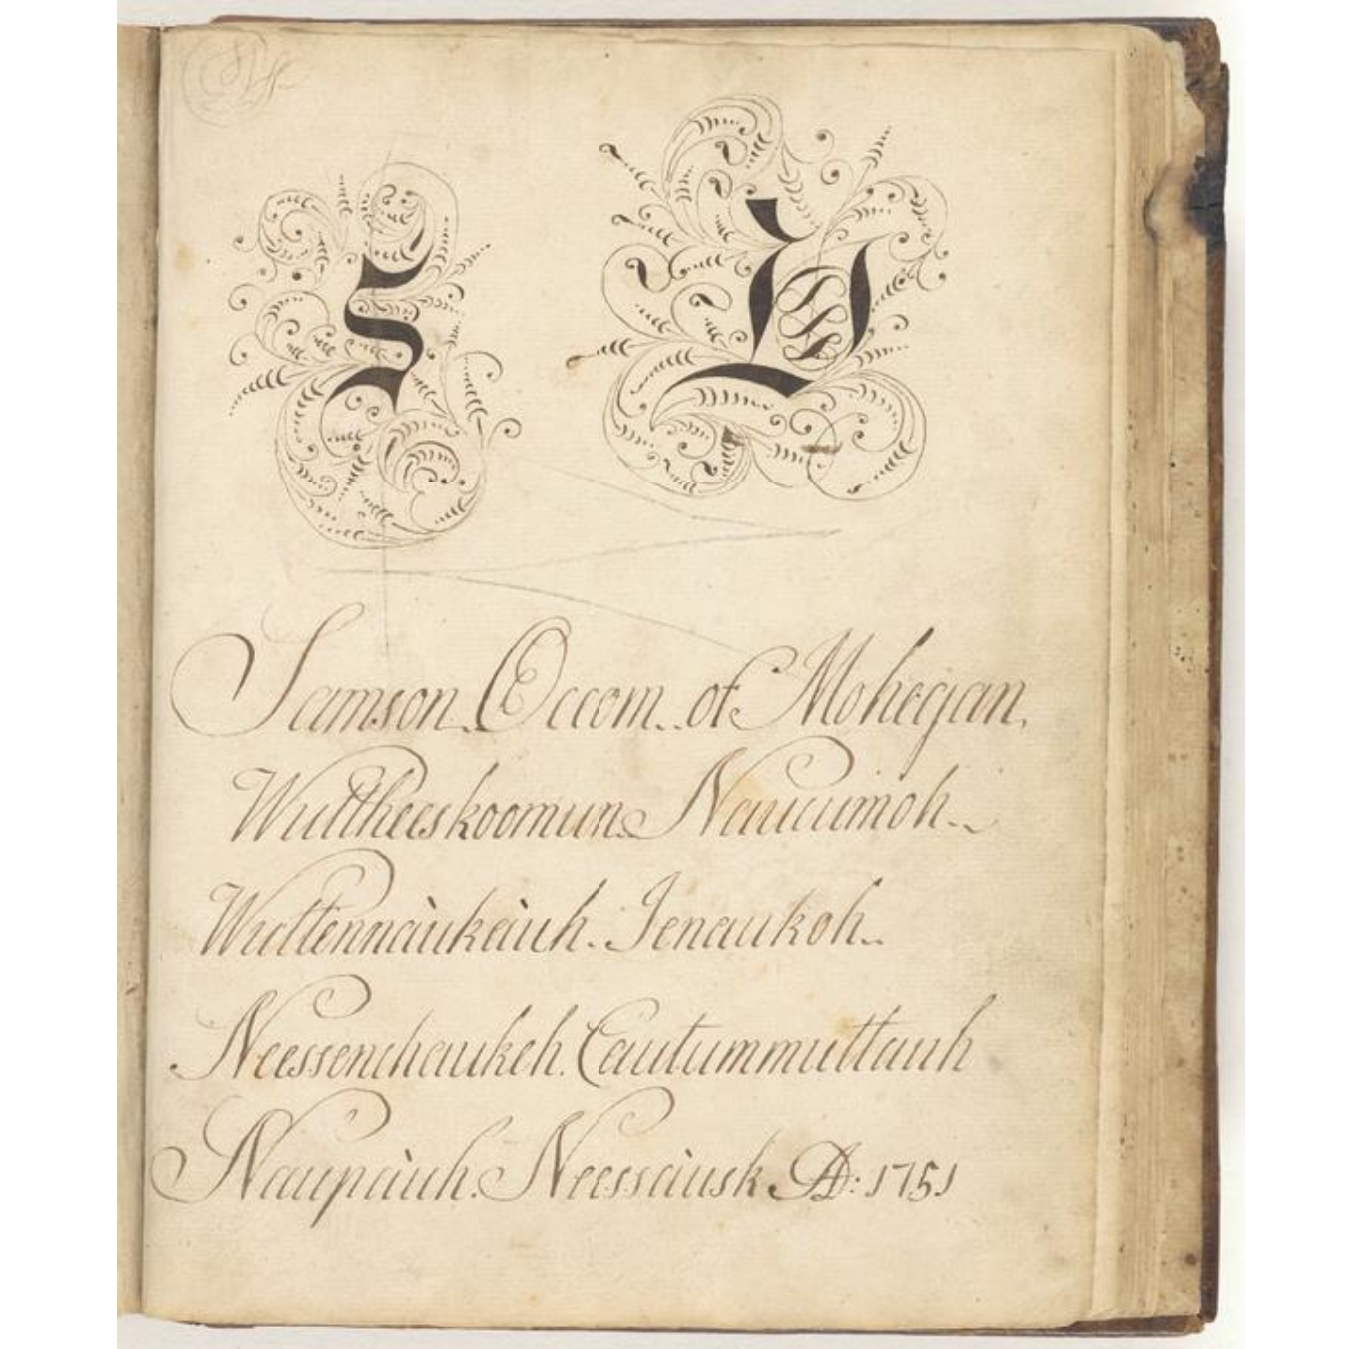 S O
Samson Occom of Mohegan,
Wuttheeskoomun Nauumoh
Wuttennàukàuh. Jenaukoh
Neessenchaukeh. Cautummuttauh
Naupàuh. Neessàusk AD: 1751